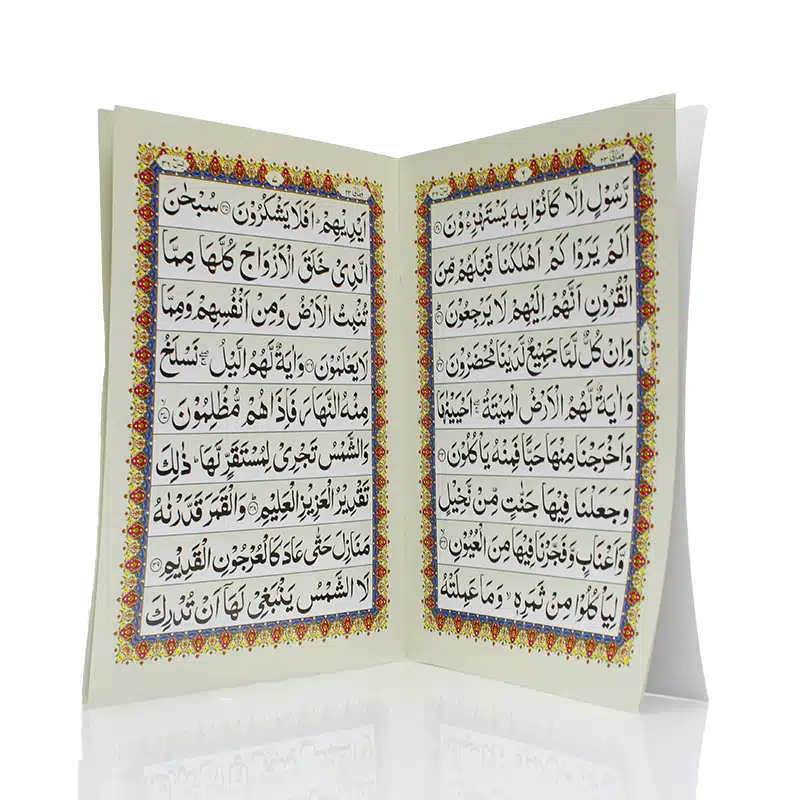 رَّسُوْلٍ اِلَّا كَانُوْا بِهٖ يَسْتَهْزِءُوْنَ ۳۰
اَلَمْ يَرَوْا كَمْ اَهْلَكْنَا قَبْلَهُمْ مِّنَ
الْقُرُوْنِ اَنَّهُمْ اِلَيْهِمْ لَا يَرْجِعُوْنَ ۳۱
وَاِنْ كُلٌّ لَّمَّا جَمِيْعٌ لَّدَيْنَا مُحْضَرُوْنَ ۳۲
وَاٰيَةٌ لَّهُمُ الْاَرْضُ الْمَيْتَةُ ۚ اَحْيَيْنٰهَا
وَاَخْرَجْنَا مِنْهَا حَبًّا فَمِنْهُ يَاْكُلُوْنَ ۳۳
وَجَعَلْنَا فِيْهَا جَنّٰتٍ مِّنْ نَّخِيْلٍ
وَّاَعْنَابٍ وَّفَجَّرْنَا فِيْهَا مِنَ الْعُيُوْنِ ۳۴
لِيَاْكُلُوْا مِنْ ثَمَرِهٖ ۙ وَمَا عَمِلَتْهُ
اَيْدِيْهِمْ ؕ اَفَلَا يَشْكُرُوْنَ ۳۵ سُبْحٰنَ
الَّذِيْ خَلَقَ الْاَزْوَاجَ كُلَّهَا مِمَّا
تُنْۢبِتُ الْاَرْضُ وَمِنْ اَنْفُسِهِمْ وَمِمَّا
لَا يَعْلَمُوْنَ ۳۶ وَاٰيَةٌ لَّهُمُ الَّيْلُ ۖۚ نَسْلَخُ
مِنْهُ النَّهَارَ فَاِذَا هُمْ مُّظْلِمُوْنَ ۳۷
وَالشَّمْسُ تَجْرِيْ لِمُسْتَقَرٍّ لَّهَا ؕ ذٰلِكَ
تَقْدِيْرُ الْعَزِيْزِ الْعَلِيْمِ ۳۸ وَالْقَمَرَ قَدَّرْنٰهُ
مَنَازِلَ حَتّٰى عَادَ كَالْعُرْجُوْنِ الْقَدِيْمِ ۳۹
لَا الشَّمْسُ يَنْۢبَغِيْ لَهَاۤ اَنْ تُدْرِكَ